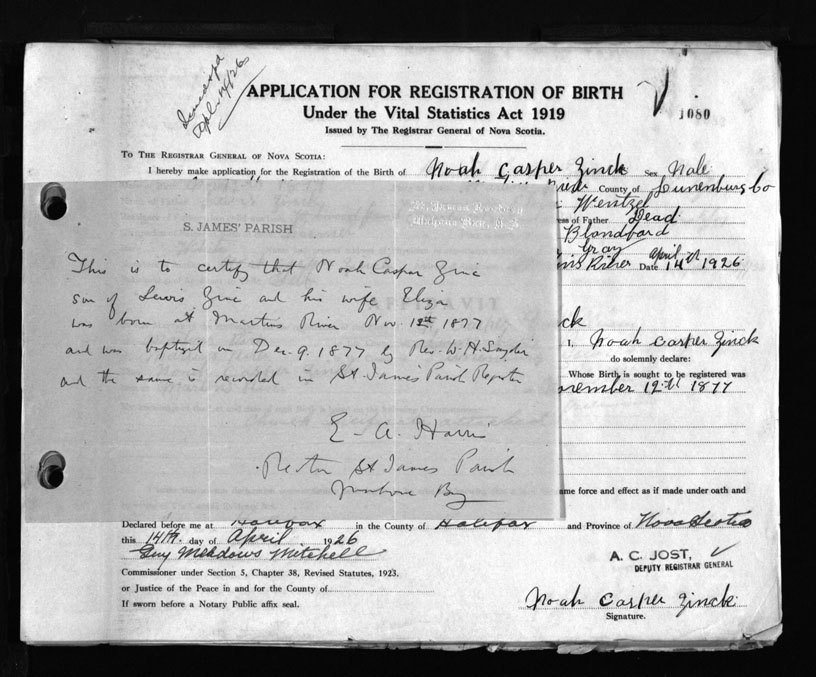 Issued
Apl. 14/26
APPLICATION FOR REGISTRATION OF BIRTH
Under the Vital Statistics Act 1919
Issued by The Registrar General of Nova Scotia.
1080
TO THE REGISTRAR GENERAL OF NOVA SCOTIA:
I hereby make application for the Registration of the Birth of Noah Casper Zinck Sex Male
County of Lunenburg Co
Wentzel
ess of Father Dead
Blandford
Gray
River Date April 14th 1926
S. JAMES' PARISH
This is to certify that Noah Casper Zinc
son of Lewis Zinc and his wife Eliza
was born at Martins River Nov. 12th 1877
and was baptized on Dec. 9. 1877 by Rev. W. H. Snyder
and the same is recorded in St. James' Parish Register
E. A. Harris
Rector St James Parish
Mahone Bay
ck
I, Noah Casper Zinck
do solemnly declare:
Whose Birth is sought to be registered was
vember 12th 1877
ame force and effect as if made under oath and
Declared before me at Halifax in the County of Halifax and Province of Nova Scotia
this 14th. day of April 1926
Guy Meadows Mitchell
A. C. JOST,
DEPUTY REGISTRAR GENERAL
Commissioner under Section 5, Chapter 38, Revised Statutes, 1923.
or Justice of the Peace in and for the County of
If sworn before a Notary Public affix seal.
Noah Casper Zinck
Signature.